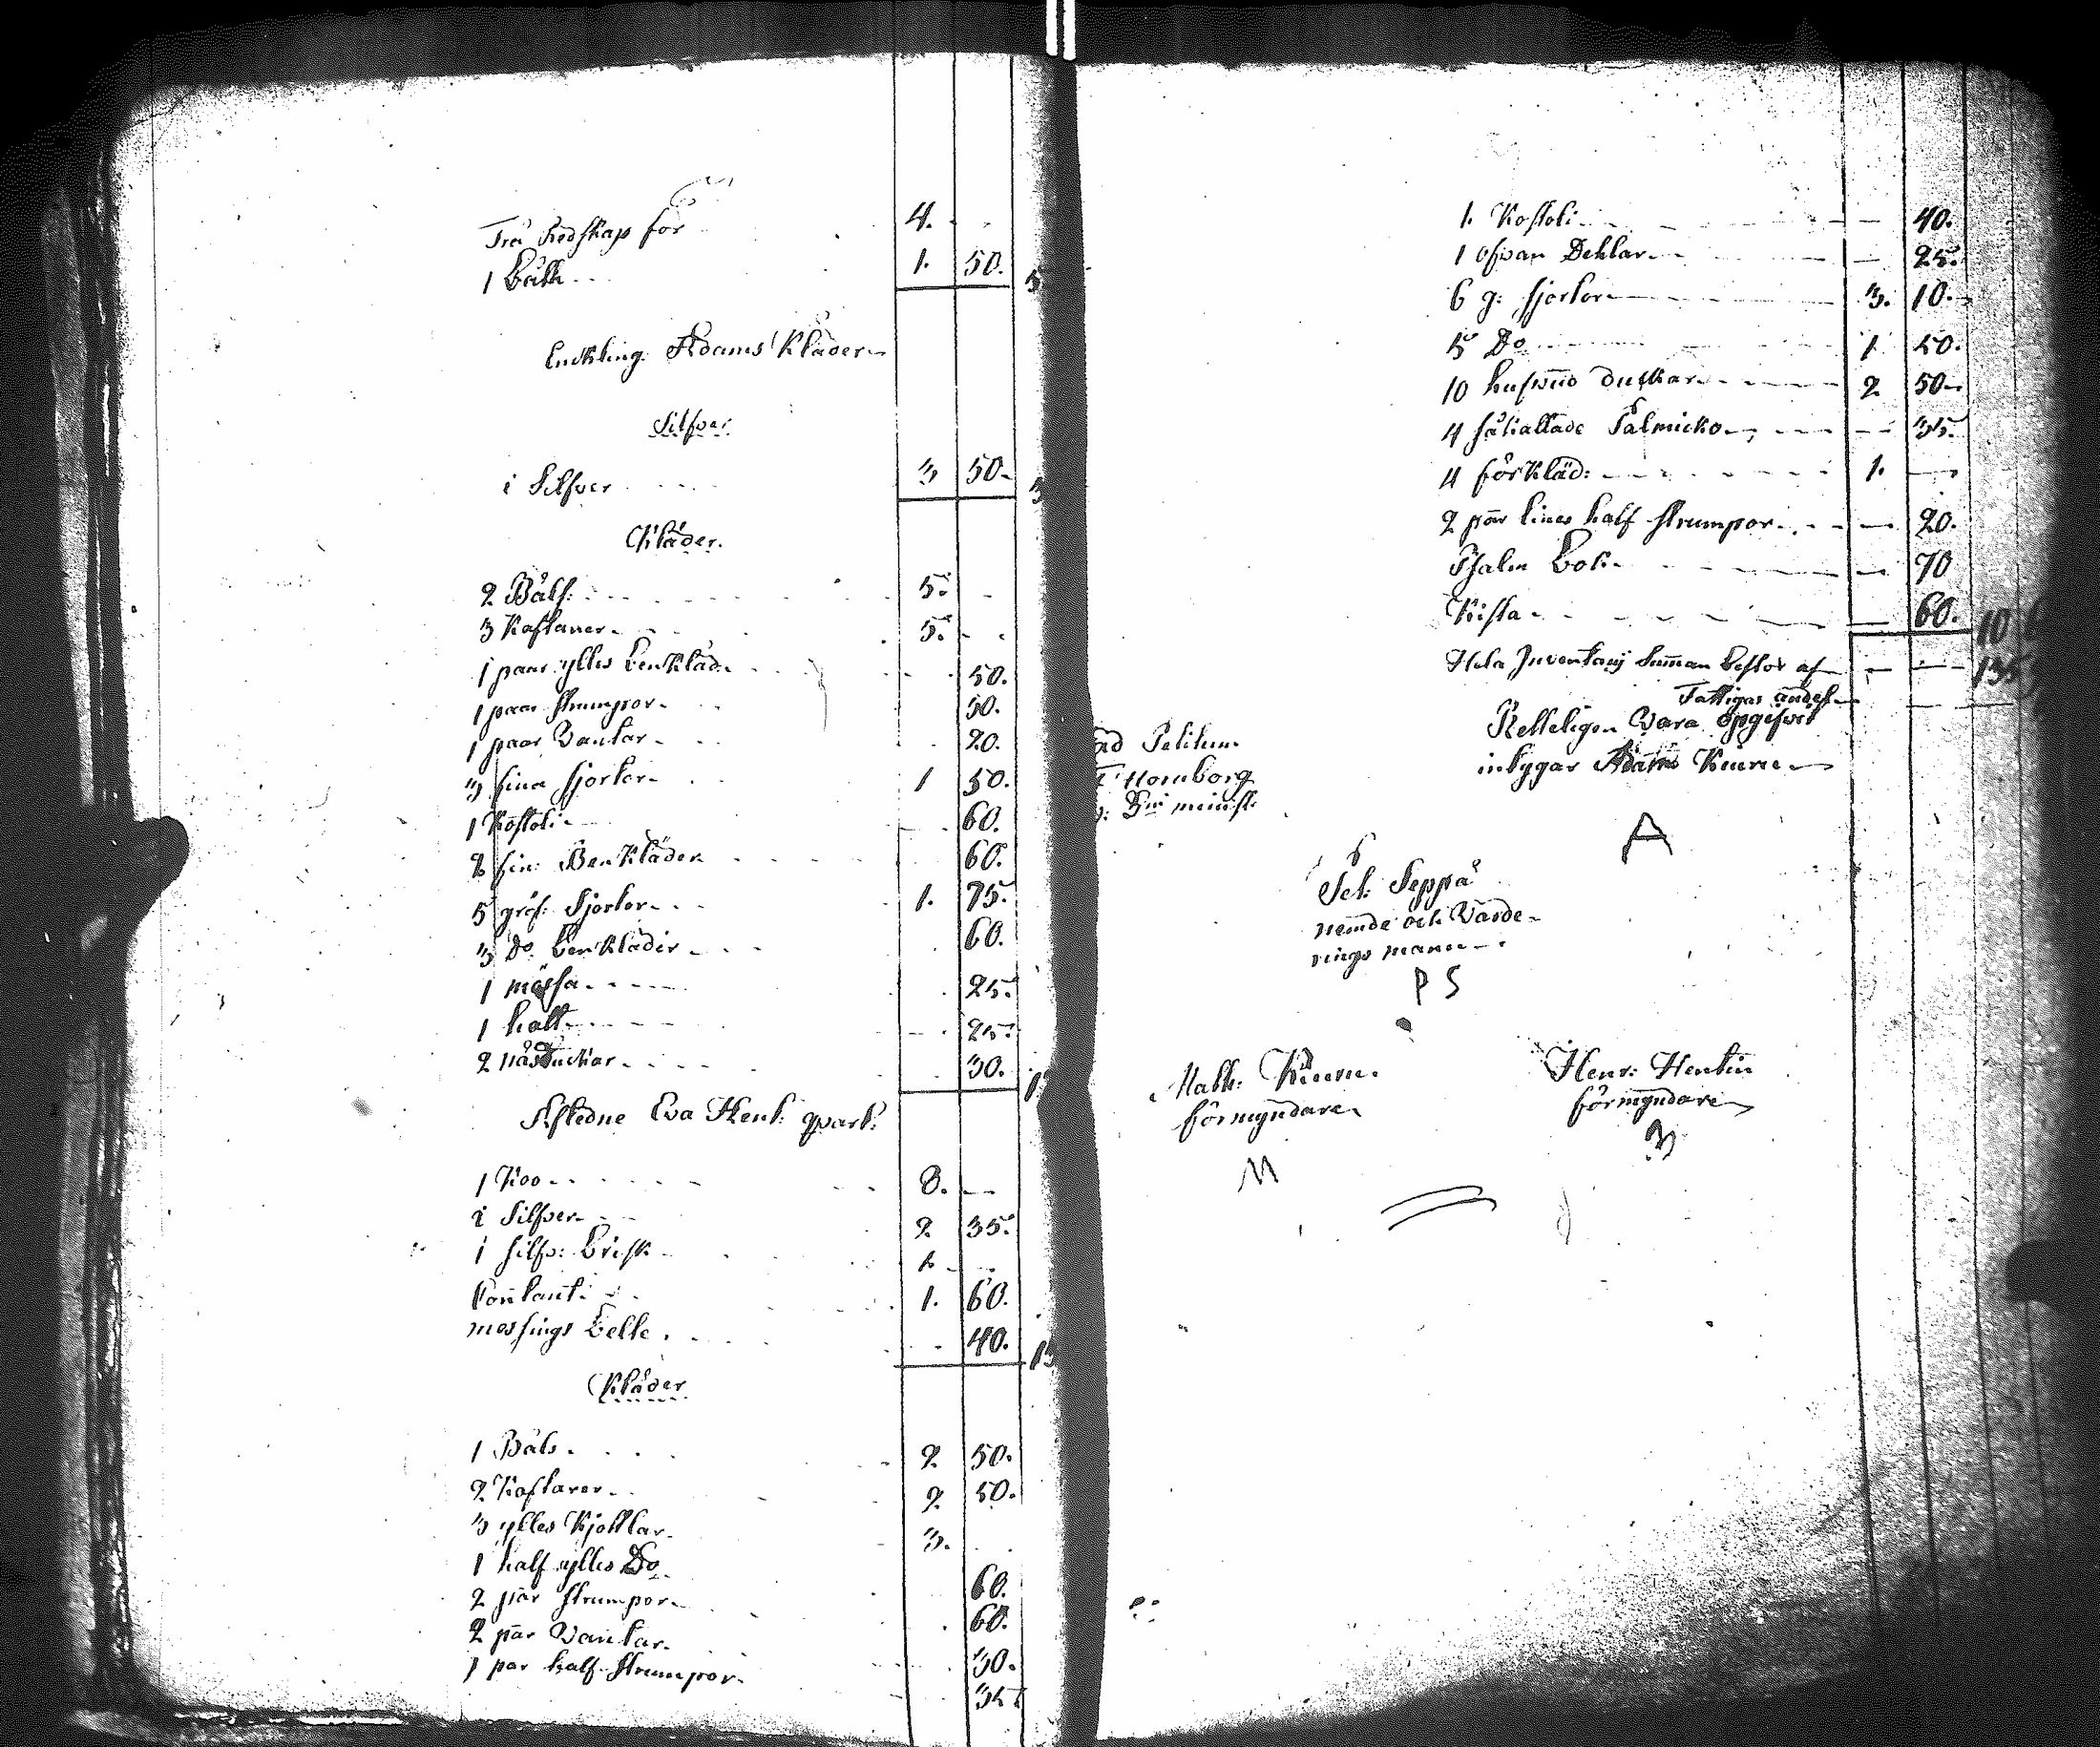 Trä Redskap för 4. -
1 Båth 1. 50. 5
Enckling Adams Kläder
Silfver
i Silfver 3 50 3
Kläder.
2 Päls: 5. -
3 Kaftaner 5. -
1 paar ylles benkläd. 50.
1 paar strumpor 30.
1 paar Vantar 20.
3 fina sjortor 1 50.
1 Kostoli 60.
2 fin: Benkläder 60.
5 gröf: Sjortor 1. 75.
3 Do. benkläder 60.
1 mössa 25.
1 hatt 25.
2 näsduckar 30.
Aflidne Eva Henl: qvarl:
1 Koo 8. -
i Silfver 2 35.
1 silfv: brisk
Contant: 1. 60.
messings belte 40. 13
Kläder
1 Päls 2 50.
2 Kaftaner 2 50.
3 ylles Kjohlar 3.
1 half ylles Do 60.
2 pär strumpor 60.
2 pär Vantar 30.
1 par half strumpor 35
1. Kostoli 40.
1 ofvan Dehlar 25.
6 g: sjortor 3. 10.
5 Do 1 50.
10 hufvud duckar 2 50
4 så kallade 35.
4 förkläd: 1. -
2 pär lines half strumpor 20.
Psalm Bok 70
Kista 60. 10
Hela Inventarij Summan bestor af 135
Fattigas andel
Retteligen Vara opgifvit
inbygar Adam Kinnu
A
ad Petitum
Homborg
minist:
Sel: Seppä
nemde och Värde-
rings mann
P S
Math: Kinnu
förmyndare
M
Henr: Hentin
förmyndare
3